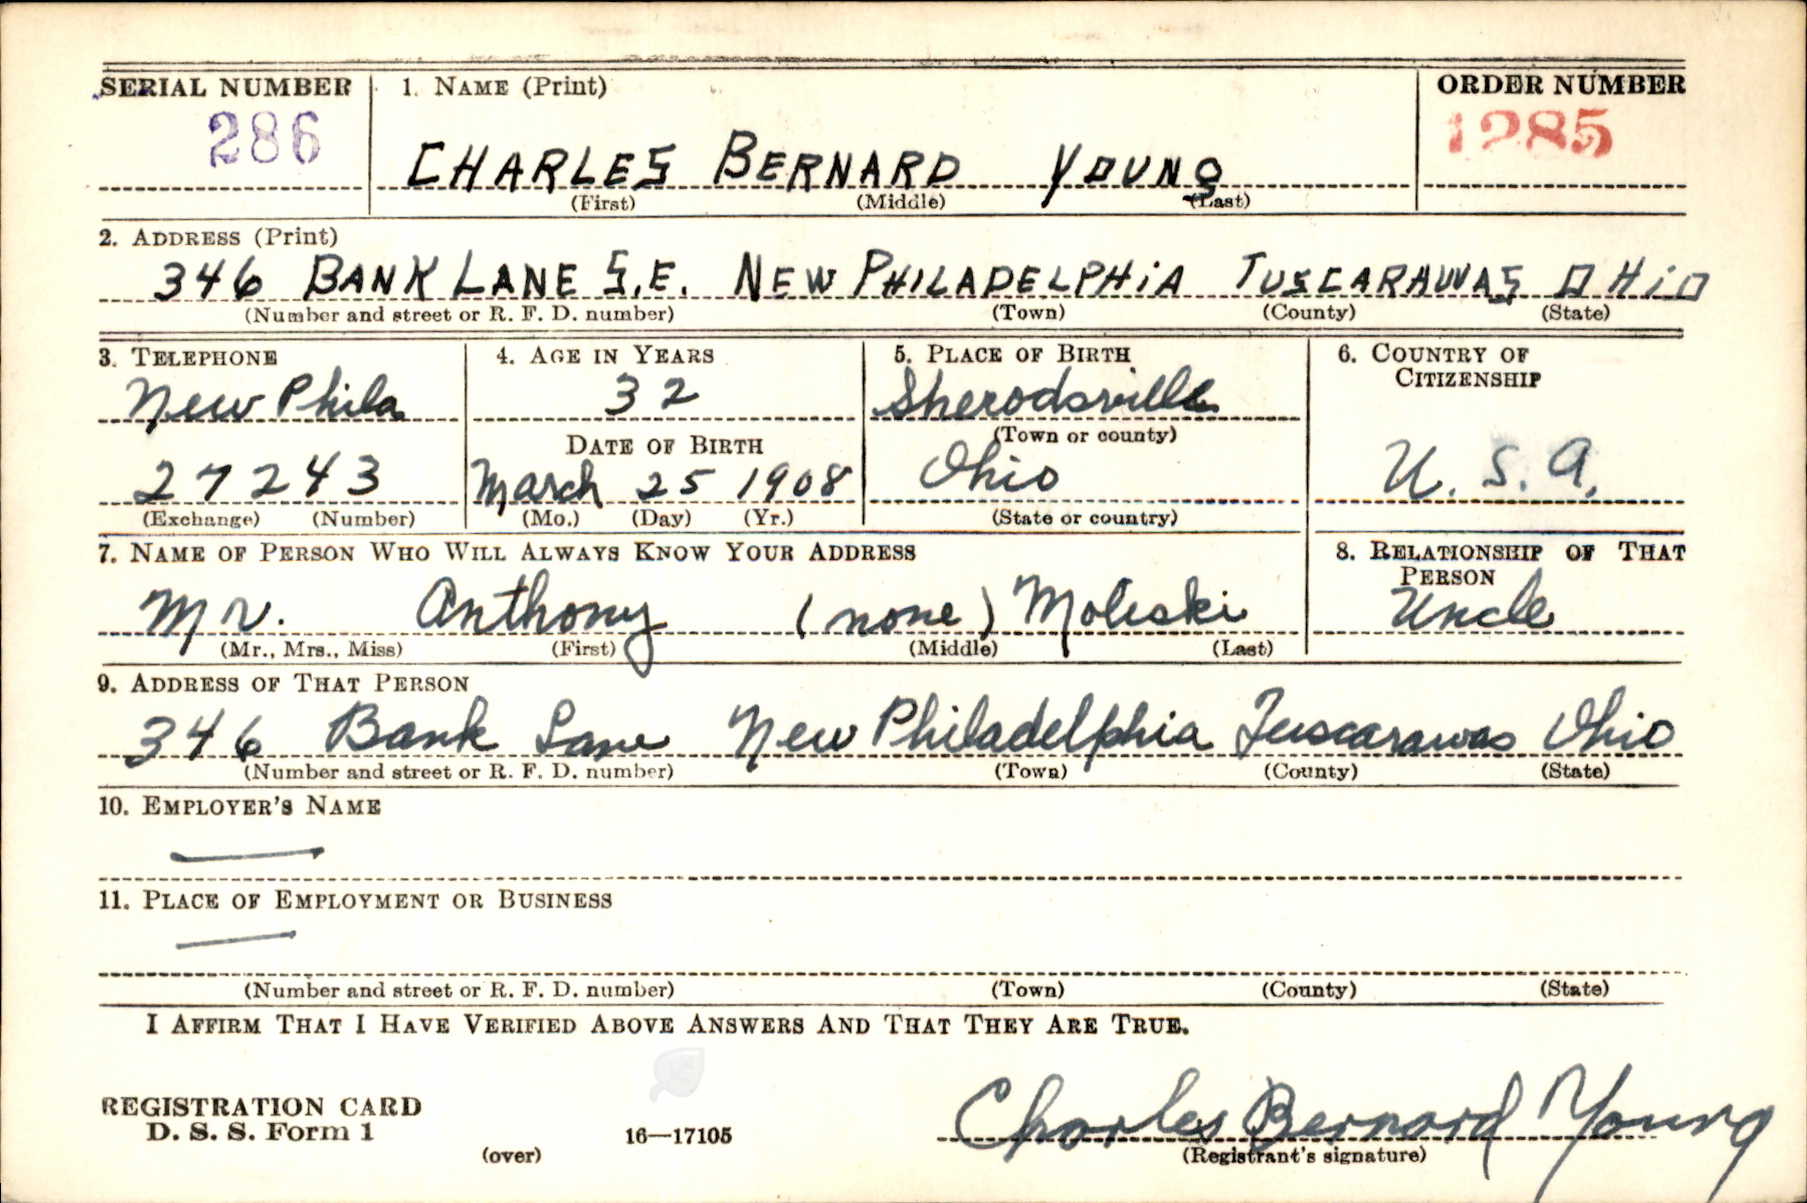 SERIAL NUMBER 1. NAME (Print) ORDER NUMBER
286 CHARLES BERNARD YOUNG 1285
(First) (Middle) (Last)
2. ADDRESS (Print)
346 BANK LANE S.E. NEW PHILADELPHIA TUSCARAWAS OHIO
(Number and street or R. F. D. number) (Town) (County) (State)
3. TELEPHONE 4. AGE IN YEARS 5. PLACE OF BIRTH 6. COUNTRY OF
CITIZENSHIP
New Phila 32 Sherodsville
DATE OF BIRTH (Town or county)
27243 March 25 1908 Ohio U. S. A.
(Exchange) (Number) (Mo.) (Day) (Yr.) (State or country)
7. NAME OF PERSON WHO WILL ALWAYS KNOW YOUR ADDRESS 8. RELATIONSHIP OF THAT
PERSON
Mr. Anthony (none) Moleski Uncle
(Mr., Mrs., Miss) (First) (Middle) (Last)
9. ADDRESS OF THAT PERSON
346 Bank Lane New Philadelphia Tuscarawas Ohio
(Number and street or R. F. D. number) (Town) (County) (State)
10. EMPLOYER'S NAME
—
11. PLACE OF EMPLOYMENT OR BUSINESS
—
(Number and street or R. F. D. number) (Town) (County) (State)
I AFFIRM THAT I HAVE VERIFIED ABOVE ANSWERS AND THAT THEY ARE TRUE.
REGISTRATION CARD
D. S. S. Form 1 16—17105 Charles Bernard Young
(over) (Registrant's signature)